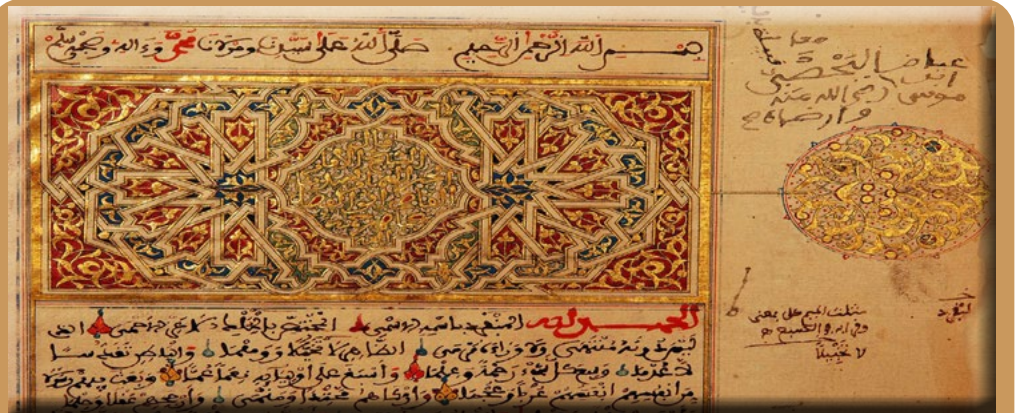 بسم الله الرحمن الرحيم صلى الله على سيدنا ومولانا محمد وءاله وصحبه وسلم
عياض اليحصبي
موسى رضي الله عنه
وارضاه
الحمد لله المنفرد باسمه الاسمى المختص بالملك الاعز الاحمى الذي
ليس دونه منتهى ولا وراءه مرمى الظاهر لا تخيلا ووهما والباطن تقدسا
لا عدما وسع كل شيء رحمة وعلما واسبغ على اوليائه نعما عما وبعث فيهم رسولا
من انفسهم انفسهم عربا وعجما وازكاهم محتدا ومنمى وارجحهم عقلا وحلما
لا تخيلا